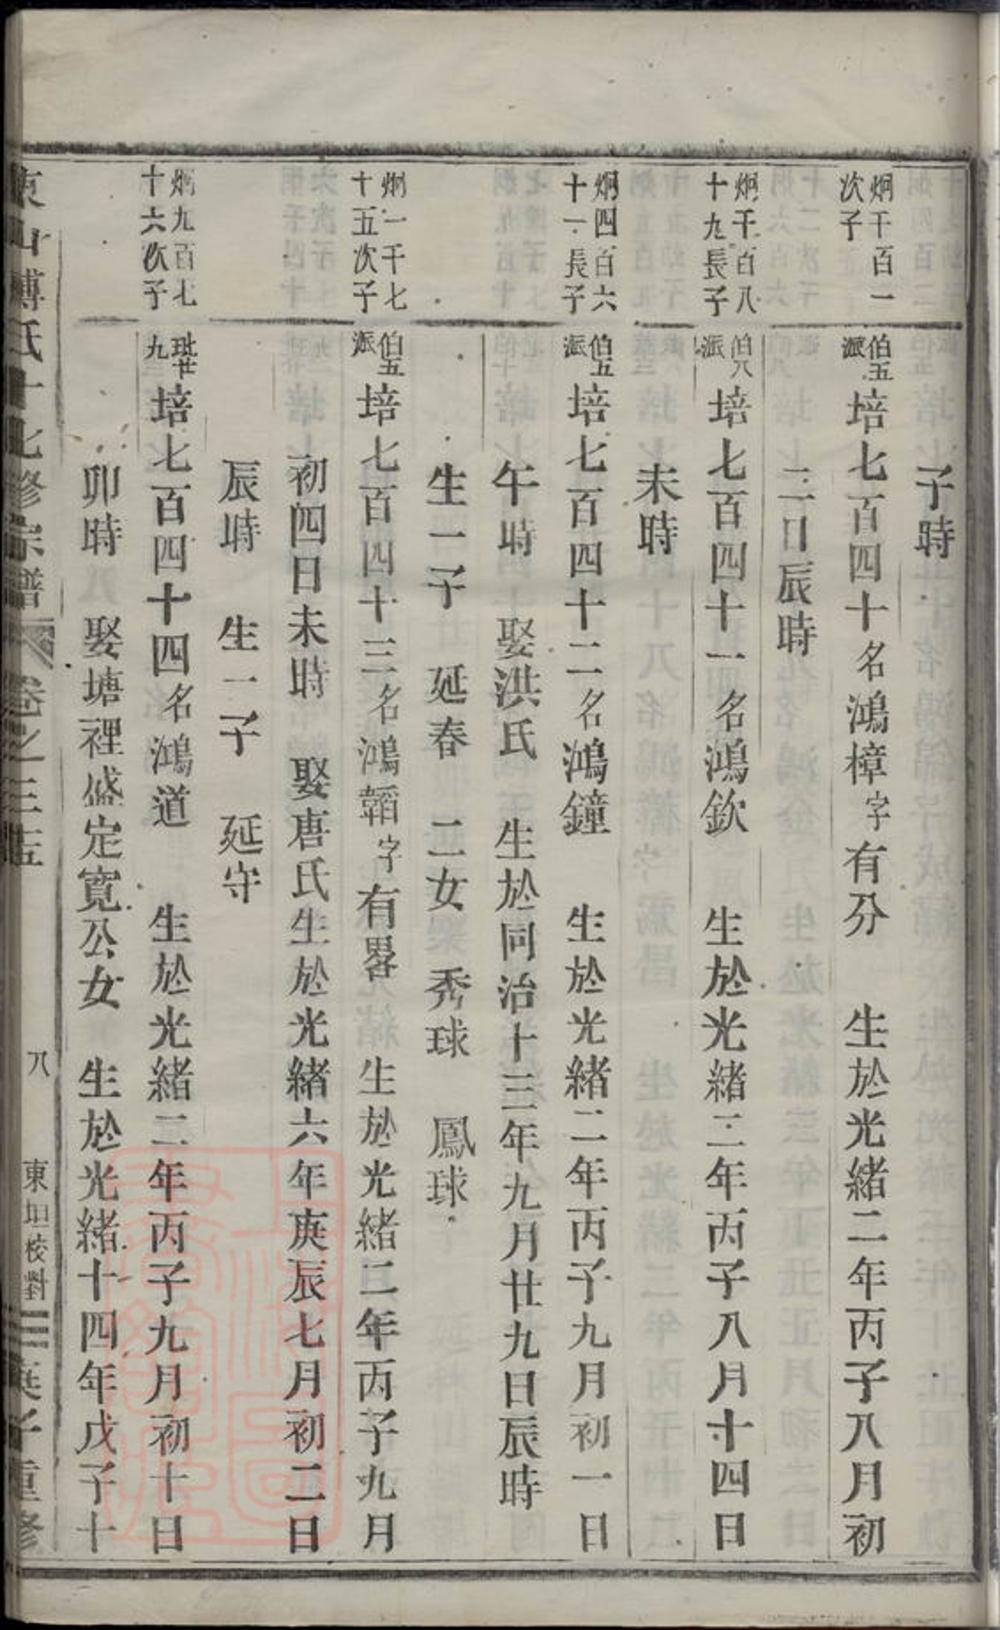 子時
炯千百一
次子
伯五
派
培七百四十名鴻樟字有分 生於光緒二年丙子八月初
二日辰時
炯千百八
十九長子
伯八
派
培七百四十一名鴻欽 生於光緒二年丙子八月十四日
未時
炯四百六
十一長子
伯五
派
培七百四十二名鴻鐘 生於光緒二年丙子九月初一日
午時 娶洪氏 生於同治十三年九月廿九日辰時
生一子 延春 二女 秀球 鳳球
炯一千七
十五次子
伯五
派
培七百四十三名鴻韜字有畧 生於光緒二年丙子九月
初四日未時 娶唐氏生於光緒六年庚辰七月初二日
辰時 生一子 延守
炯九百七
十六次子
九
培七百四十四名鴻道 生於光緒二年丙子九月初十日
卯時 娶塘裡盛定寬公女 生於光緒十四年戊子十
東山傅氏十七修宗譜 卷之三 八 東垣校對 英子重修